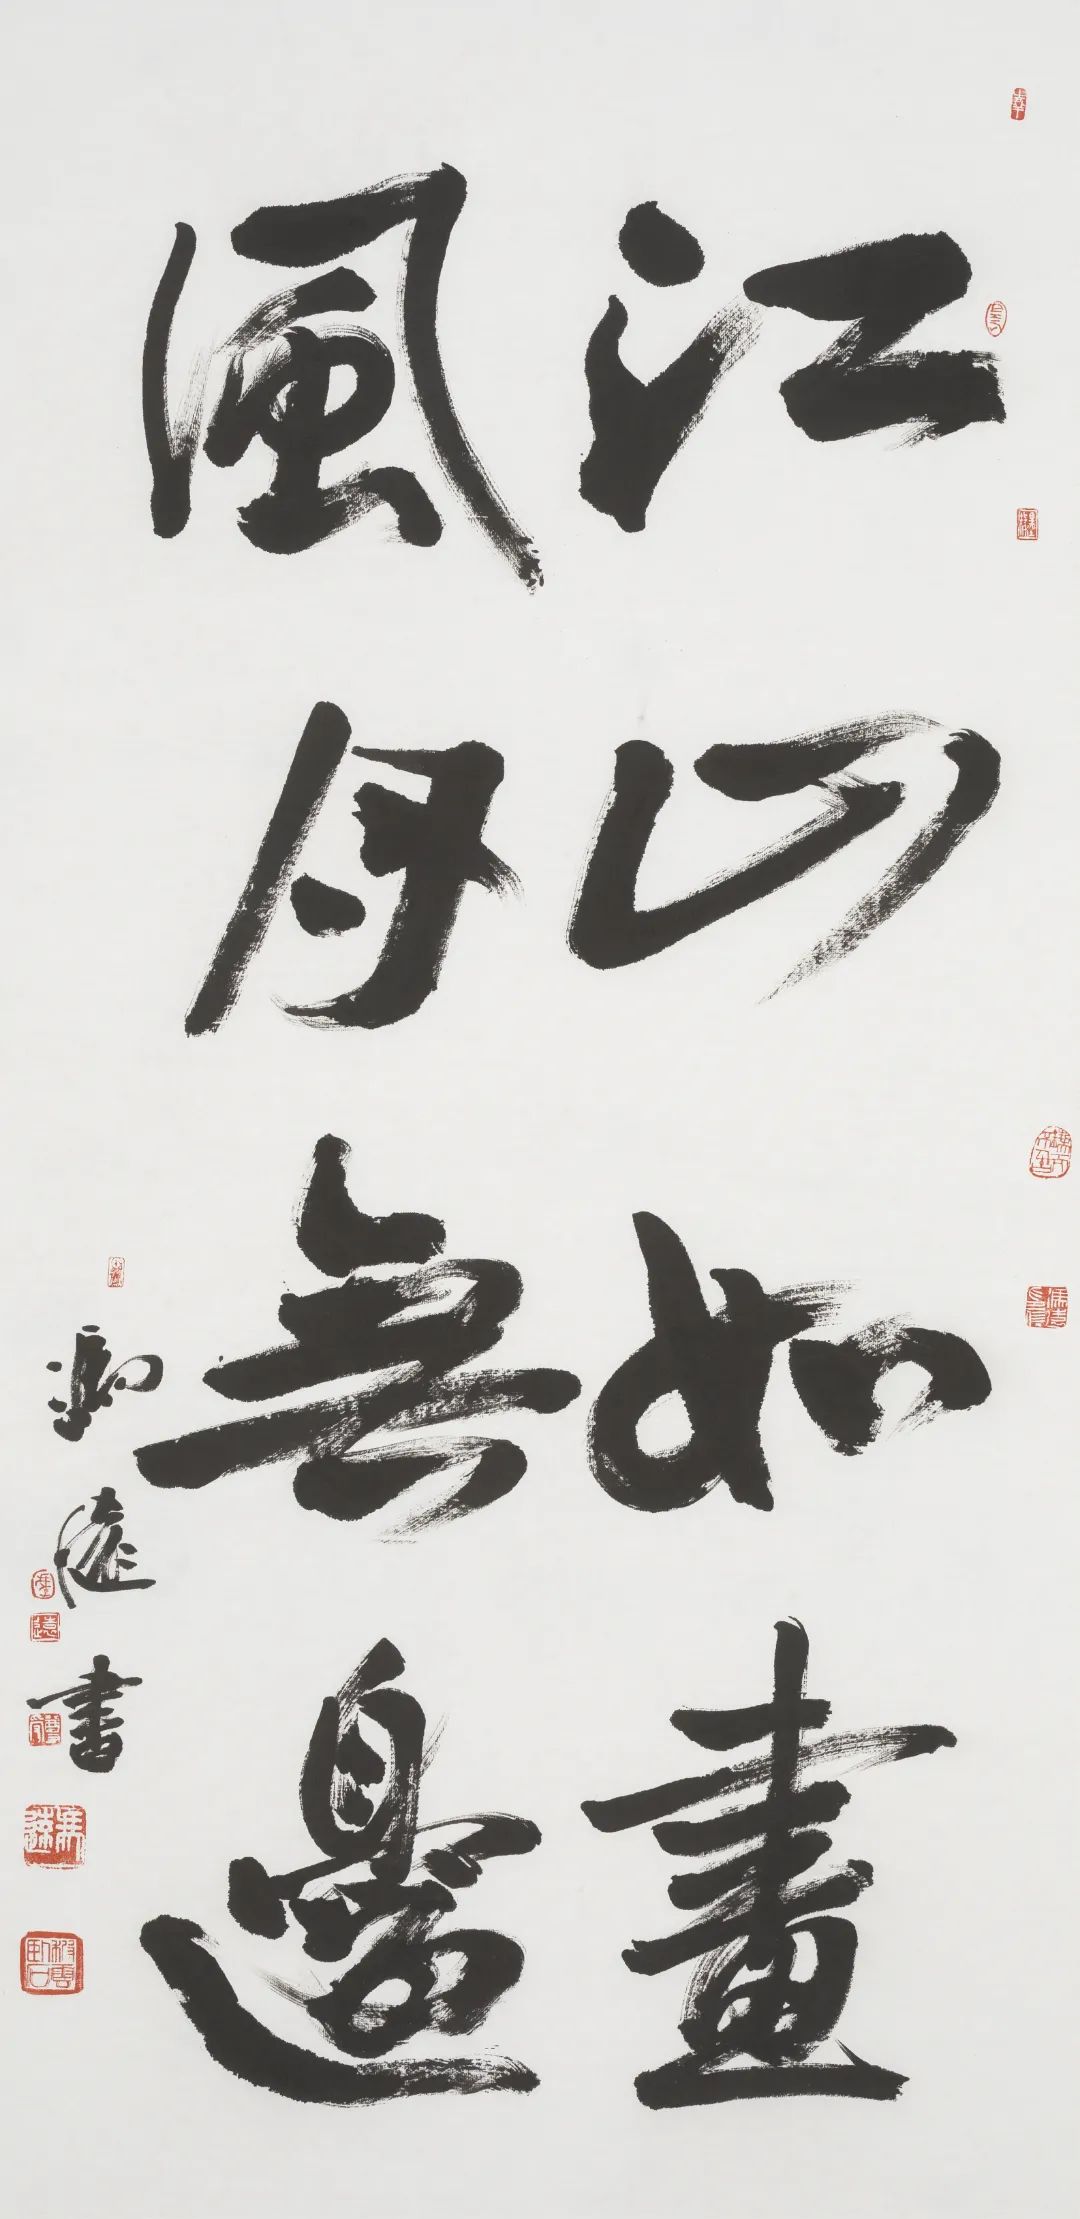 江山如畫
風月無邊
遠書